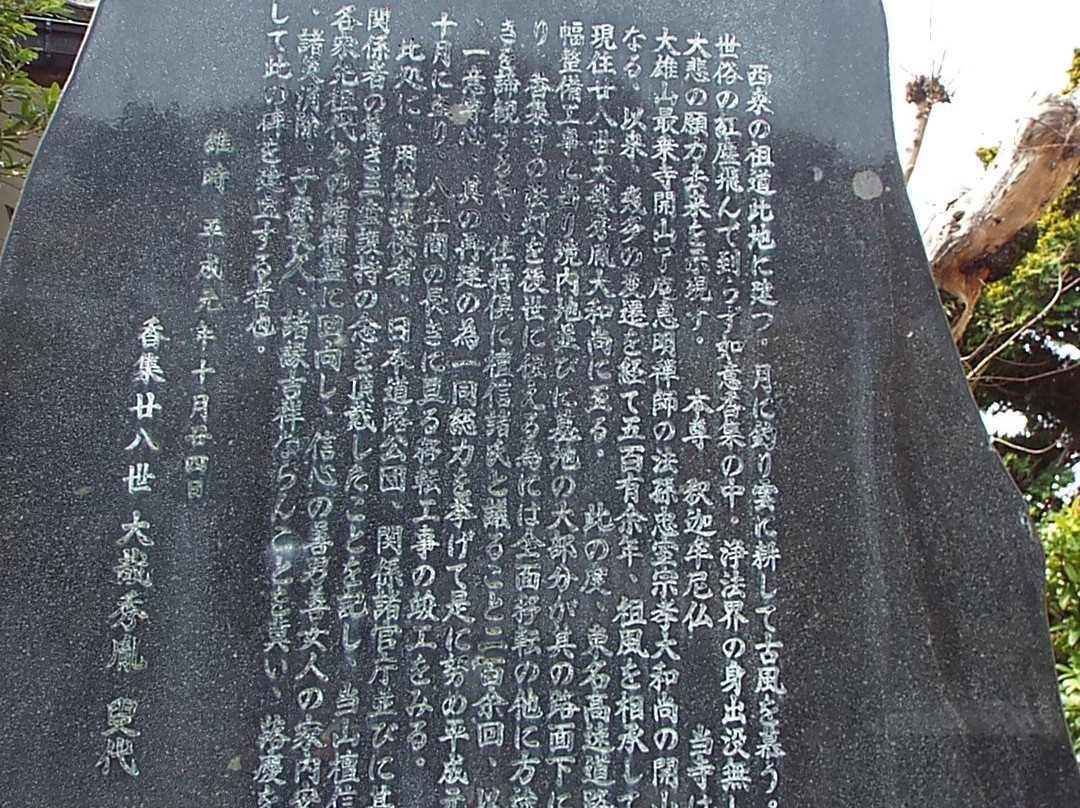 西来の祖道此地に建つ。月に釣り雲に耕して古風を慕う。
世俗の紅塵飛んで到らず如意香集の中・浄法界の身出没無し
大悲の願力去来を示現す。 本尊 釈迦牟尼仏 当寺は
大雄山最乗寺開山了庵慧明禅師の法孫忠室宗孝大和尚の開山
なる。以来、幾多の変遷を経て五百有余年、祖風を相承して
現住廿八世大哉秀胤大和尚に至る。 此の度、東名高速道路
幅整備工事に当り境内地並びに墓地の大部分が其の路面下に
り 香集寺の法灯を後世に伝える為には全面移転の他に方途
きを諦観するや、住持倶に檀信諸氏と議ること二百余回、以
、一意専心、其の再建の為一同総力を挙げて是に努め平成元
十月に至り、八年間の長きに亘る移転工事の竣工をみる。
此処に、用地提供者、日本道路公団、関係諸官庁並びに其
関係者の篤き三宝護持の念を頂戴したことを記し、当山檀信
各家先祖代々の諸精霊に回向し、信心の善男善女人の家内安
、諸災消除、子孫長久、諸縁吉祥ならんことを冀い、落慶を
して此の碑を建立する者也。
維時 平成元年十月廿四日
香集廿八世 大哉秀胤 叟代